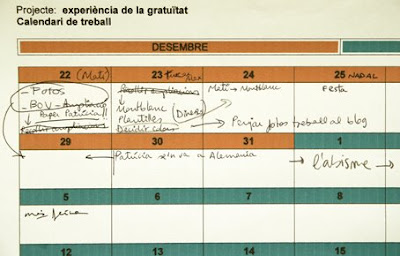 Projecte: experiència de la gratuïtat
Calendari de treball
DESEMBRE
22 (Matí)
23
24
25 NADAL
- Potos
- BOV -
→ Paper Patrícia!!
Montblanc
Plantilles
Decidir
(Diners)
Matí → Montblanc
Festa
→ Penjar fotos treball al blog
29
30
31
1
← Patrícia se'n va a Alemania →
l'abisme →
5
6
7
8
més feina
12
13
14
15